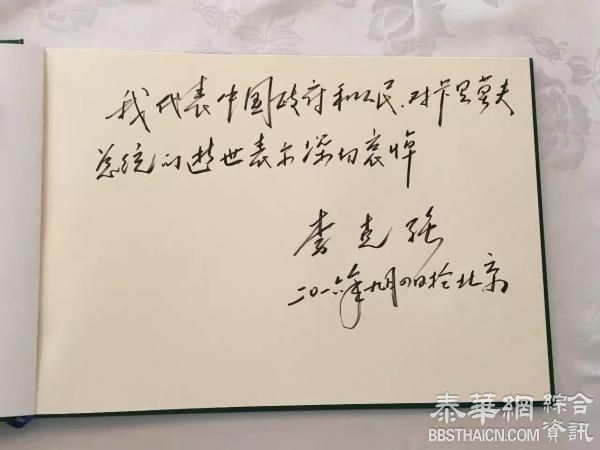 我代表中国政府和人民、对卡里莫夫
总统的逝世表示深切哀悼
李克强
二〇一六年九月四日于北京
泰華網 綜合資訊
BBSTHAICN.COM